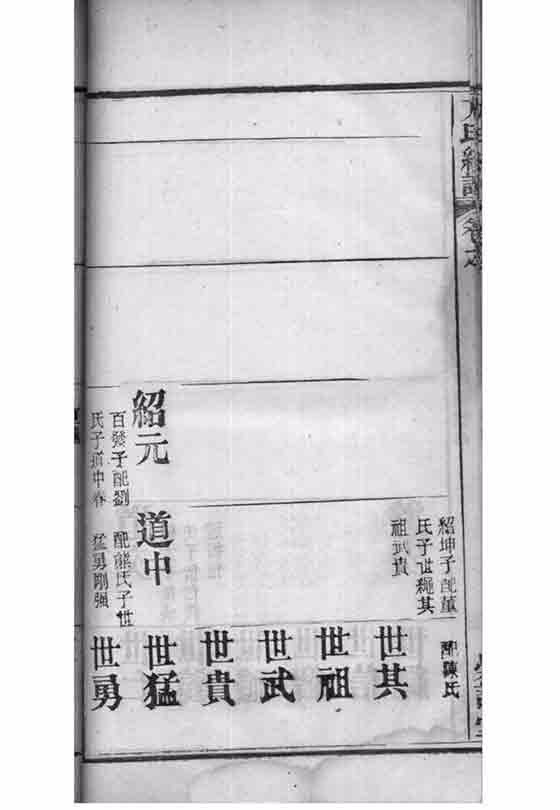 氏
卷之
紹坤子配董
氏子世繩其
祖武貴
配陳氏
世其
世祖
世武
世貴
紹元
百發子配劉
氏子道中春
道中
配熊氏子世
猛勇剛强
世猛
世勇